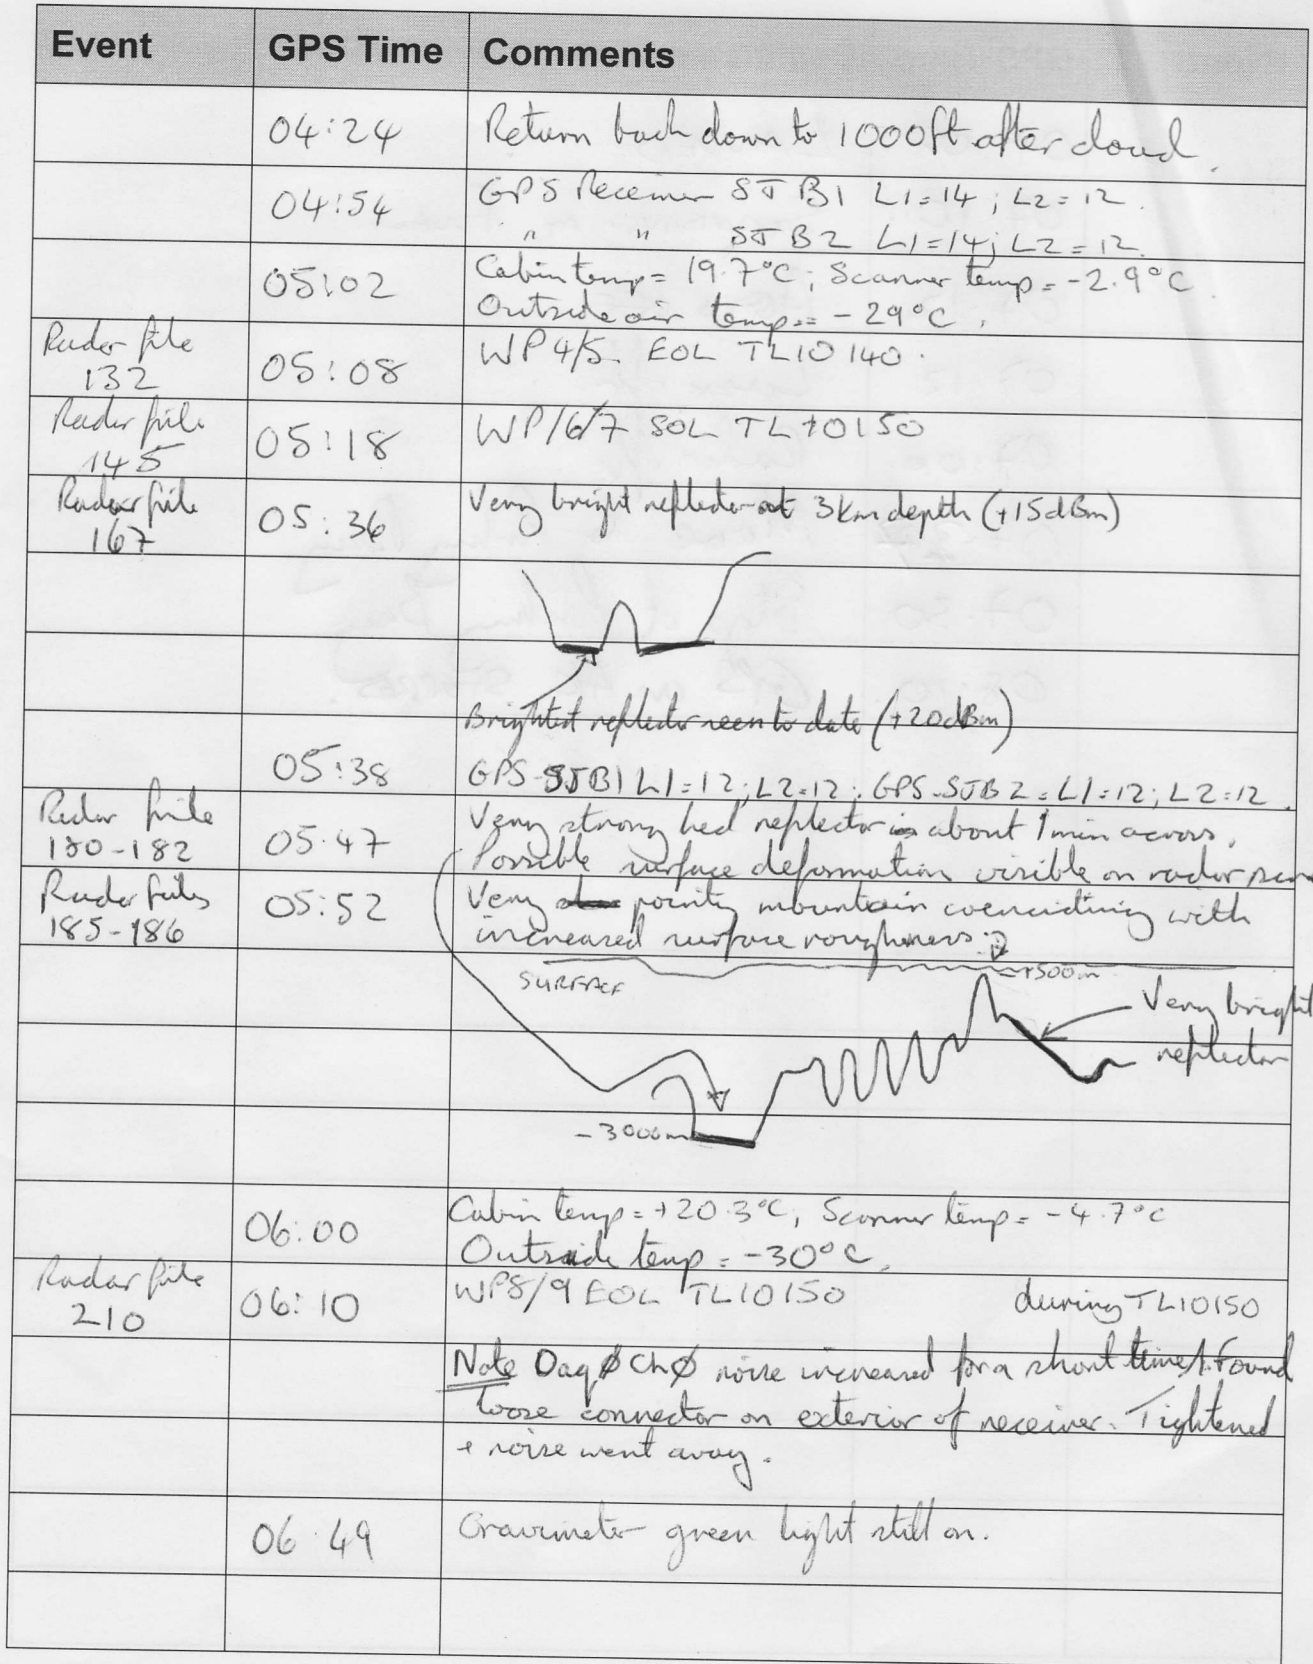 Event GPS Time Comments
04:24 Return back down to 1000ft after cloud.
04:54 GPS Receiver SJB1 L1=14; L2=12.
" " SJB2 L1=14; L2=12.
05:02 Cabin temp= 19.7°C; Scanner temp= -2.9°C.
Outside air temp.= -29°C.
Radar file
132 05:08 WP4/5. EOL TL10140.
Radar file
145 05:18 WP/6/7 SOL TL10150
Radar file
167 05:36 Very bright reflector at 3km depth (+15dBm)
Brightest reflector seen to date (+20dBm)
05:38 GPS-SJB1 L1=12; L2=12; GPS-SJB2: L1=12; L2=12.
Radar file
180-182 05:47 Very strong bed reflector is about 1min across.
Possible surface deformation visible on radar
Radar files
185-186 05:52 Very pointy mountain coenciding with
increased surface roughness:
SURFACE
+500m
Very bright
reflector
-3000m
06:00 Cabin temp= +20.3°C, Scanner temp= -4.7°C
Outside temp= -30°C.
Radar file
210 06:10 WP8/9 EOL TL10150 during TL10150
Note Daq Ø ChØ noise increased for a short time. Found
loose connector on exterior of receiver. Tightened
+ noise went away.
06:49 Gravimeter green light still on.